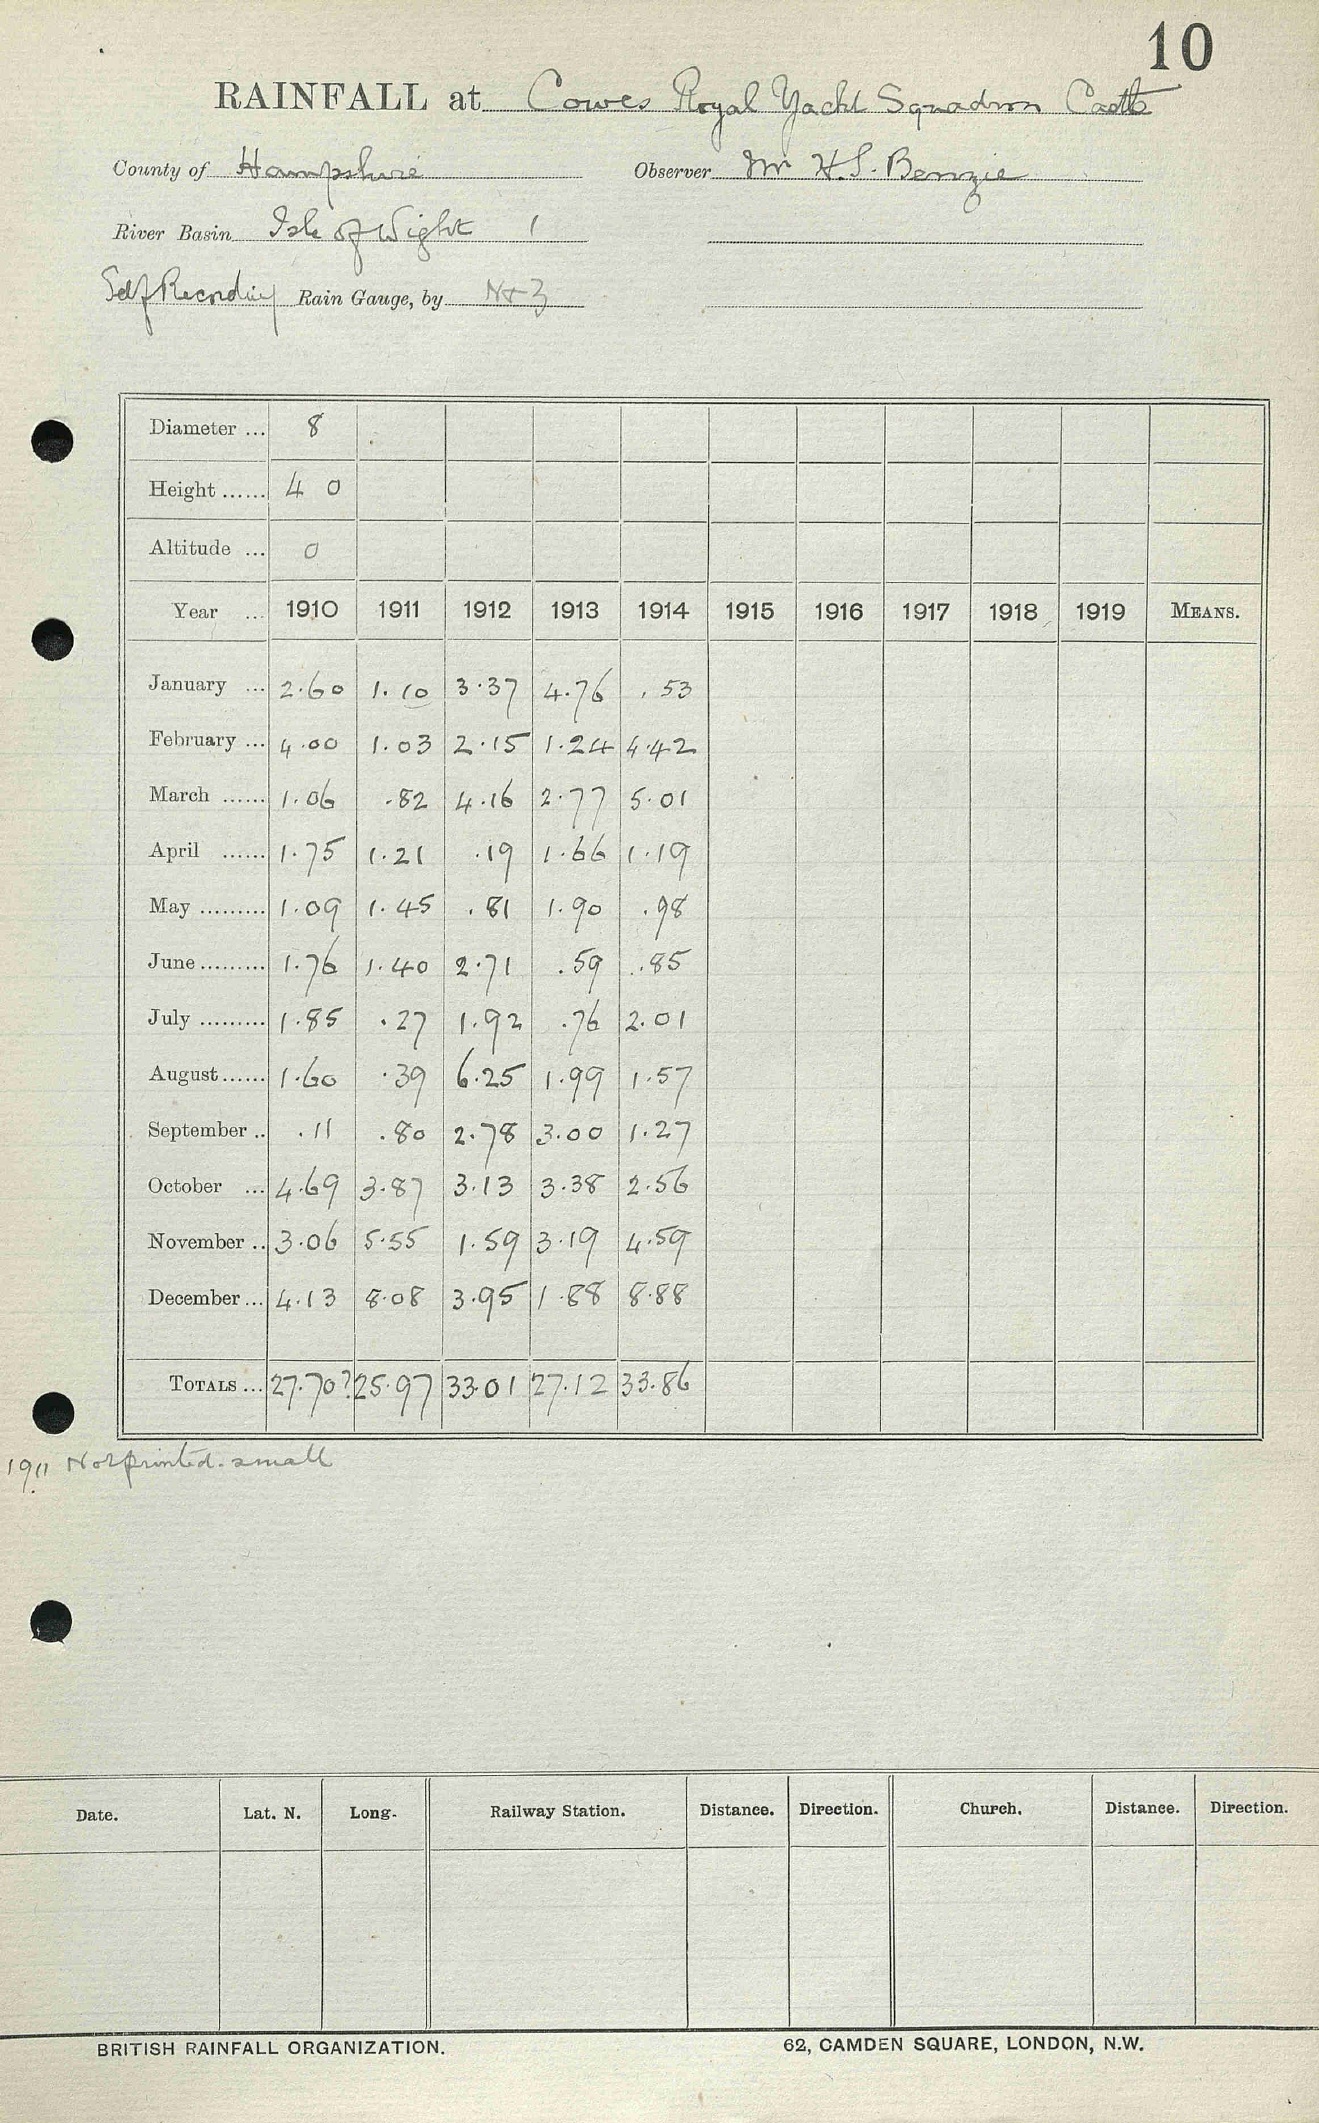 10
RAINFALL at Cowes Royal Yacht Squadron Castle
County of Hampshire Observer Mr H.S. Benzie
River Basin Isle of Wight 1
Self Recording Rain Gauge, by N & Z
Diameter ... 8
Height ...... 4 0
Altitude ... 0
Year ... 1910 1911 1912 1913 1914 1915 1916 1917 1918 1919 MEANS.
January ... 2.60 1.10 3.37 4.76 .53
February ... 4.00 1.03 2.15 1.24 4.42
March ...... 1.06 .82 4.16 2.77 5.01
April ...... 1.75 1.21 .19 1.66 1.19
May ......... 1.09 1.45 .81 1.90 .98
June ......... 1.76 1.40 2.71 .59 .85
July ......... 1.85 .27 1.92 .76 2.01
August ...... 1.60 .39 6.25 1.99 1.57
September .. .11 .80 2.78 3.00 1.27
October ... 4.69 3.87 3.13 3.38 2.56
November .. 3.06 5.55 1.59 3.19 4.59
December ... 4.13 8.08 3.95 1.88 8.88
TOTALS ... 27.70? 25.97 33.01 27.12 33.86
1911 Not printed. small
Date. Lat. N. Long. Railway Station. Distance. Direction. Church. Distance. Direction.
BRITISH RAINFALL ORGANIZATION. 62, CAMDEN SQUARE, LONDON, N.W.